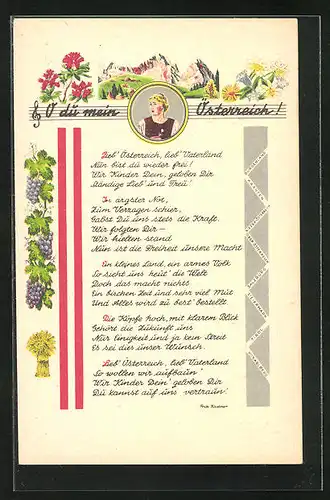 O du mein Österreich!
Lieb' Österreich, lieb' Vaterland
Nun bist du wieder frei!
Wir Kinder Dein, geloben Dir
Ständige Lieb' und Treu'.
In ärgster Not,
Zum Verzagen schier,
Gabst Du uns stets die Kraft.
Wir folgten Dir –
Wir hielten stand
Nun ist die Freiheit unsere Macht
Ein kleines Land, ein armes Volk
So sieht uns heut' die Welt
Doch das macht nichts
Ein bischen Zeit und sehr viel Mut
Und Alles wird zu best' bestellt.
Die Köpfe hoch, mit klarem Blick
Gehört die Zukunft uns
Nur Einigkeit und ja kein Streit
Es sei dies unser Wunsch.
Lieb' Österreich, lieb' Vaterland
So wollen wir aufbau'n
Wir Kinder Dein' geloben Dir
Du kannst auf uns vertrau'n!